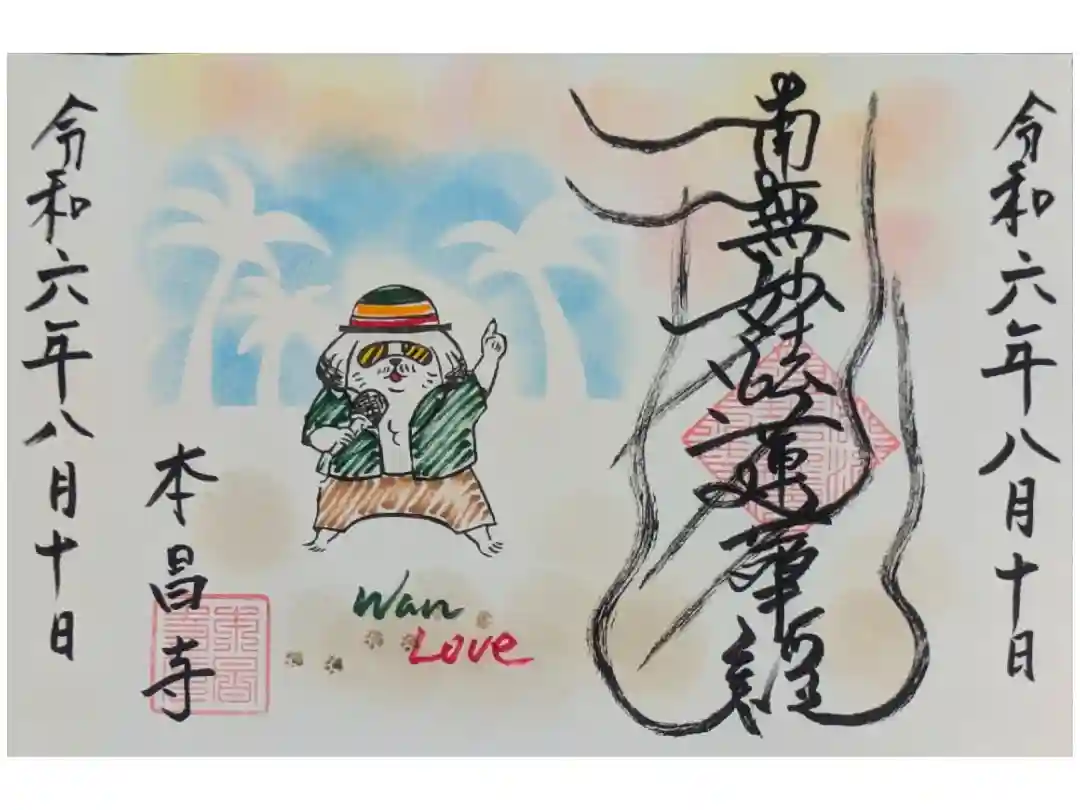 令和六年八月十日
南無妙法蓮華經
Wan
Love
本昌寺
令和六年八月十日